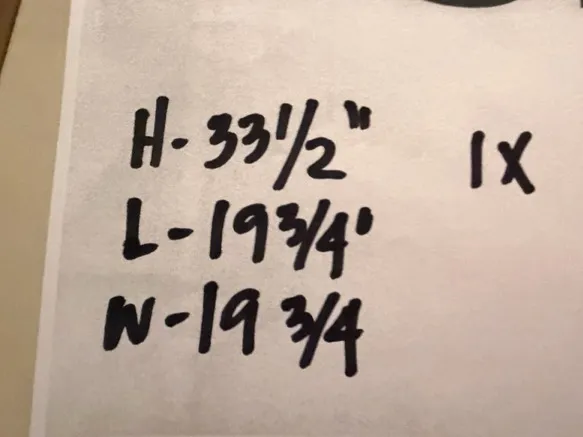 H- 33 1/2" 1X
L- 19 3/4'
W- 19 3/4